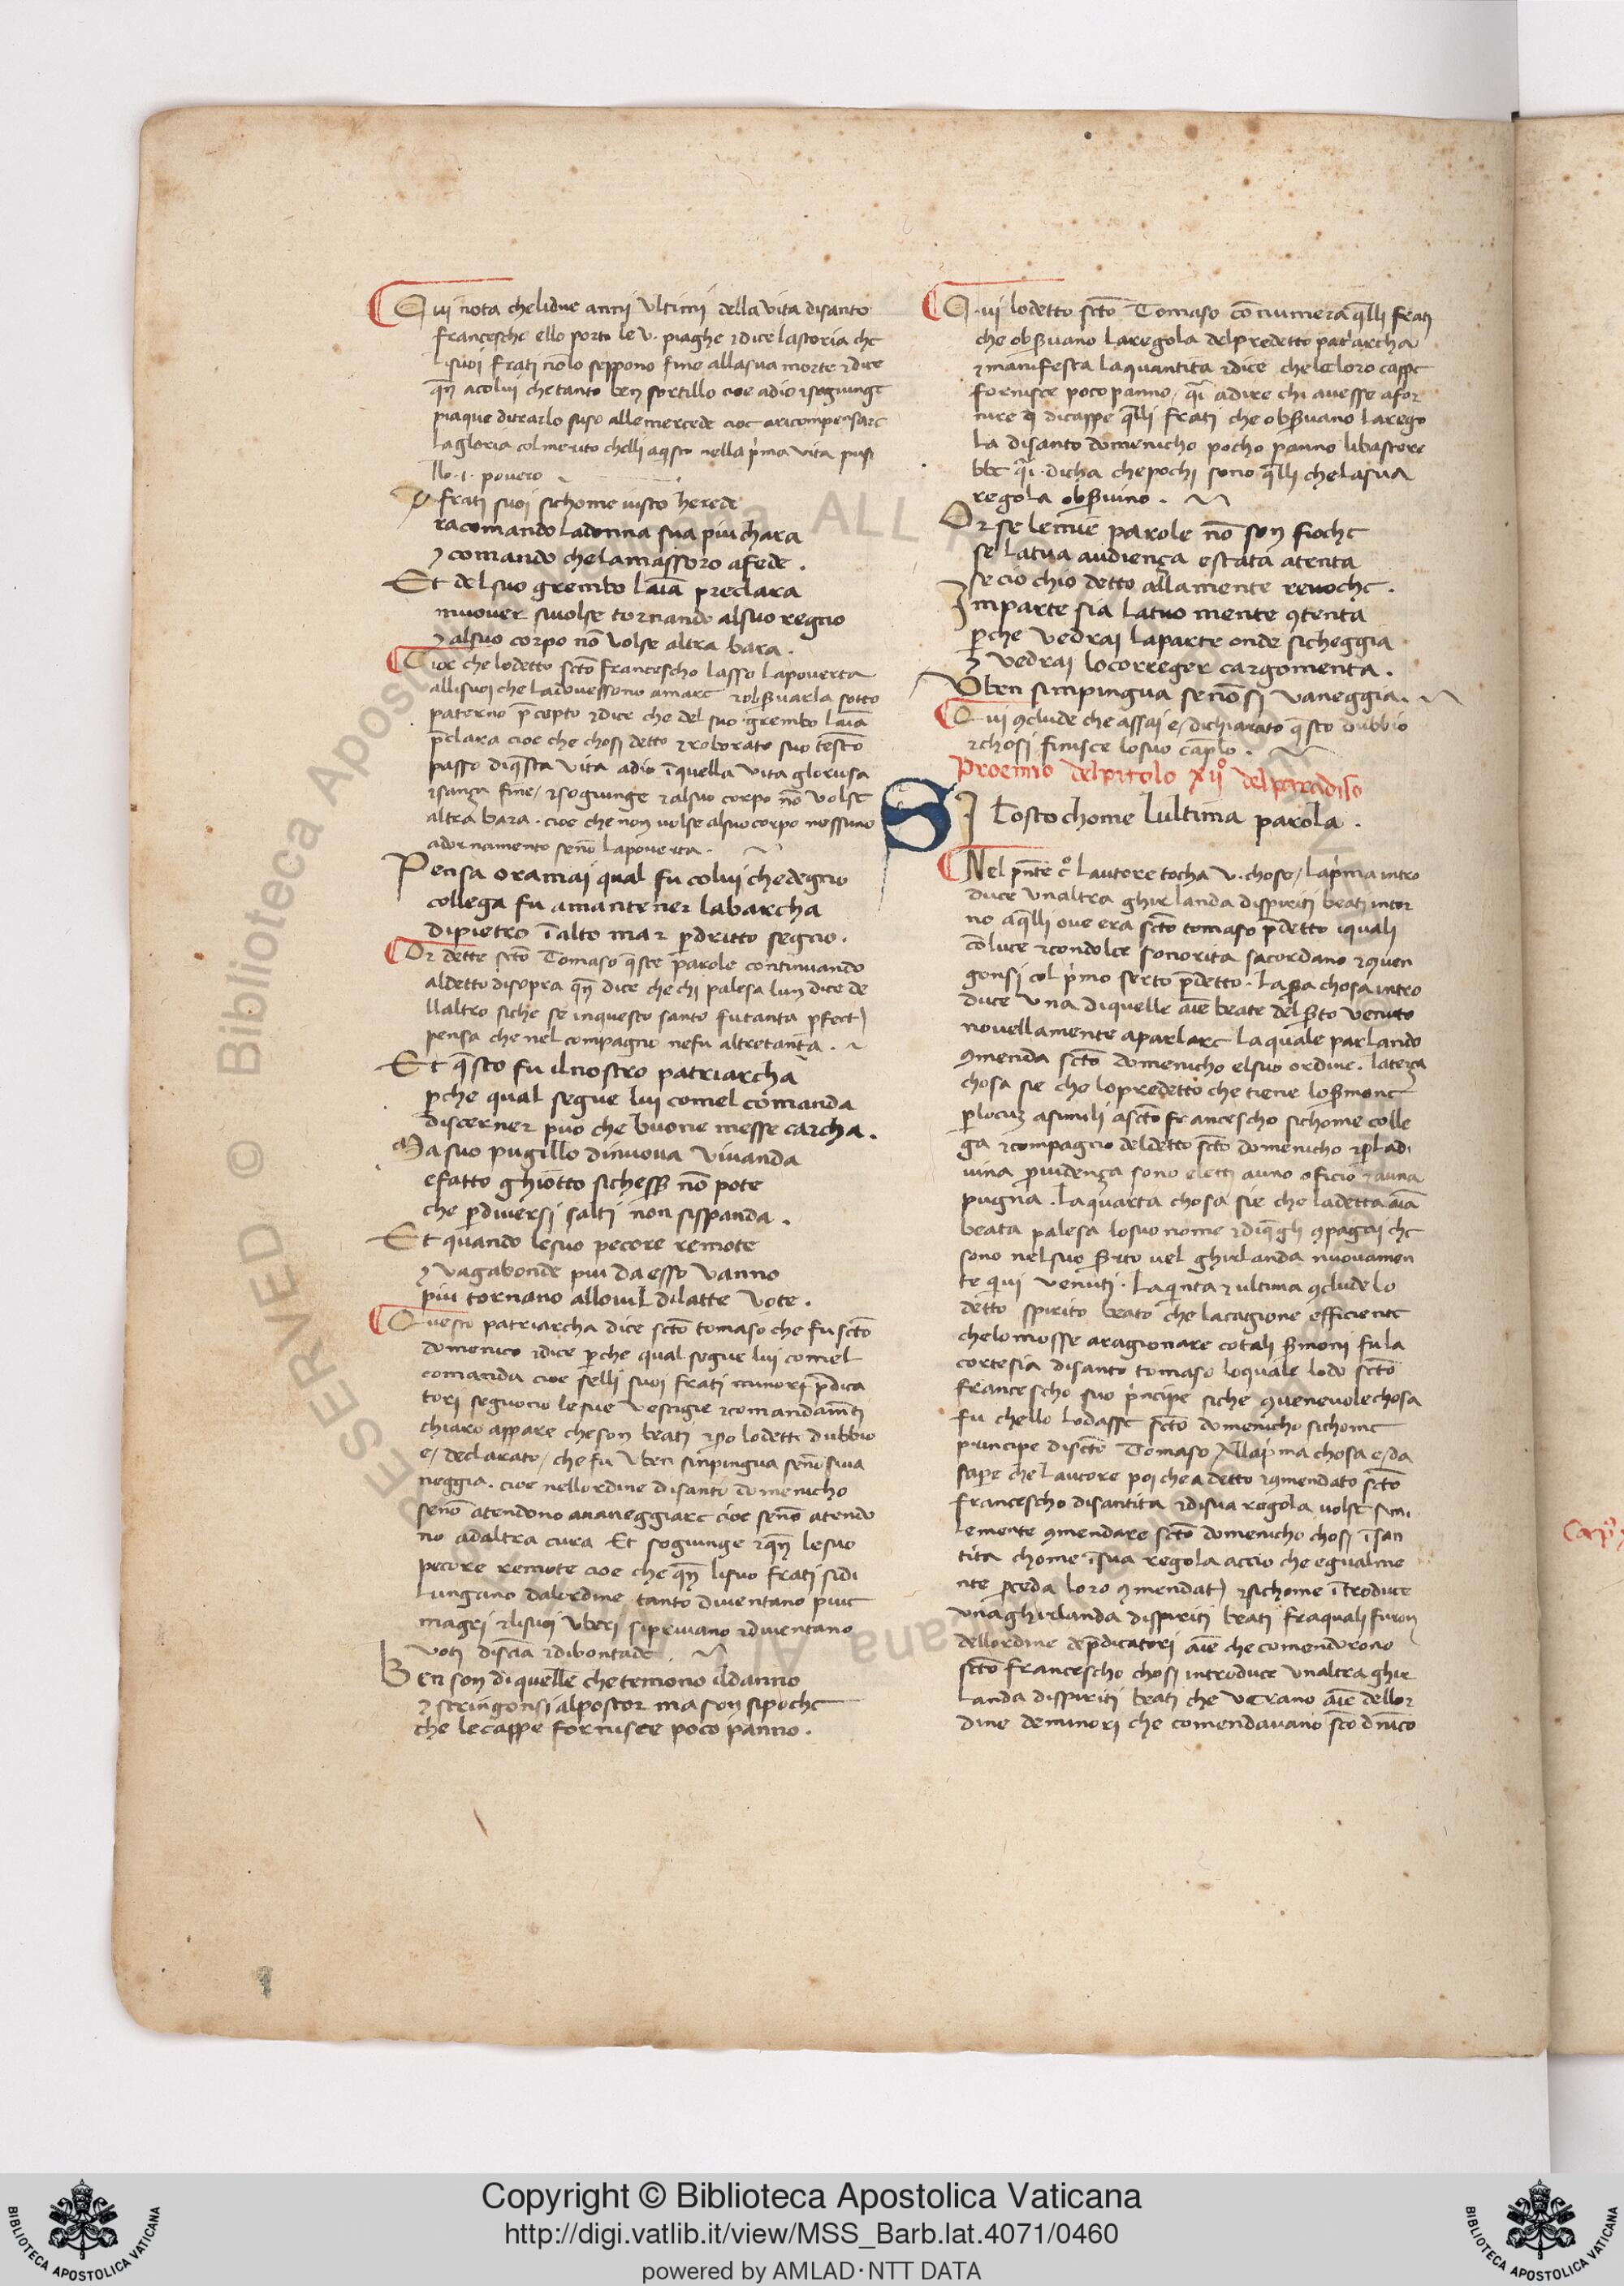 Qui nota chelidue anni ultimi della vita disanto
francescho ello porto le v. piaghe ⁊dice lastoria che
lisuoi frati nōlo seppono fine allasua morte ⁊dice
qn̄ acolui chetanto ben sortillo cioe adio ⁊sogiunge
piaque ditrarlo suso allemercede cioe aricompensare
lagloria col merito chelli aq̄sto nella p̄ma vita
llo .i. povero
frati suoi sichome iusto herede
racomando ladonna sua piuchara
⁊ comando chelamassoro afede .
Et delsuo grembo laīa preclara
muover sivolse tornando alsuo regno
⁊ alsuo corpo nō volse altra bara .
Cioe che lodetto scto francescho lasso lapoverta
allisuoi che ladovessono amare ⁊obs̄uarla sotto
paterno p̄cepto ⁊dice che del suo grembo laīa
p̄clara cioe che chosi detto ⁊roborato suo testō
passo diq̄sta vita adio īquella vita gloriosa
⁊sanza fine / ⁊sogiunge ⁊alsuo corpo nō volse
altra bara . cioe che non volse alsuo corpo nessuno
adornamento senō lapoverta .
Pensa oramai qual fu colui chedegno
collega fu amantener labarcha
dipietro īalto mar p̄dritto segno .
Or dette scto Tomaso q̄ste parole continuando
aldetto disopra qn̄ dice che chi palesa lun dice de
llaltro siche se inquesto santo futanta p̄fect
pensa che nel compagno nefu altretanta .
Et q̄sto fu ilnostro patriarcha
p̄che qual segue lui comel comanda
discerner puo che buone messe carcha .
Ma suo pugillo dinuova vivanda
efatto ghiotto sichess̄ nō pote
che p̄diversi salti non sispanda .
Et quando lesuo pecore remote
⁊ vagabonde piu da esso vanno
piu tornano allovil dilatte vote .
Questo patriarcha dice scto tomaso che fu scto
domenico ⁊dice p̄che qual segue lui comel
comanda cioe selli suoi frati minori p̄dica
tori seguono lesue vestigie ⁊comandamti
chiaro appare cheson beati ⁊p̄o lodett dubbio
e / declarato / che fu Uben sinpingua senō siva
neggia . cioe nellordine disanto domenicho
senō atendono avaneggiare cioe senō atendo
no adaltra cura Et sogiunge ⁊qn̄ lesuo
pecore remote cioe che qn̄ lisuo frati sidi
lungano dalordine tanto diventano piu
magri ⁊lisuoi Uberi siprivano ⁊diventano
voti discīa ⁊dibontade .
Ben son diquelle chetemono ildanno
⁊ stringonsi alpostor ma son sipoche
che lecappe fornisce poco panno .
Qui lodetto scto Tomaso cōnumera q̄lli frati
che obs̄uano laregola delpredetto patarcha
⁊manifesta laquantita ⁊dice che leloro cappe
fornisce poco panno / q̄i adire chi avesse afor
nire di cappe q̄lli frati che obs̄uano larego
la disanto domenicho pocho panno libastere
bbe q̄i . dicha chepochi sono q̄lli chelasua
regola obs̄uino .
Or se lemie parole nō son fioche
se latua audienza estata atenta
se cio chio detto allamente revoche .
Imparte sia latuo mente ꝯtenta
p̄che vedrai laparte onde sicheggia
⁊ vedrai locorreger cargomenta .
Uben sinpingua senōsi vaneggia .
Qui ꝯclude che assai e / dichiarato q̄sto dubbio
⁊chosi finisce losuo cap̄lo .
Proemio delpitolo xijº delparadiso
SI Tosto chome lultima parola .
Nel pn̄te cº lautore tocha v. chose / lap̄ma intro
duce unaltra ghirlanda dispiriti beati intor
no aq̄lli ove era scto tomaso p̄detto iquali
cōluce ⁊condolce sonorita sacordano ⁊ꝯven
gonsi col p̄mo serto p̄detto . las̄a chosa intro
duce una diquelle aīe beate del s̄to venuto
novellamente aparlare laquale parlando
ꝯmenda scto domenicho elsuo ordine . laterza
chosa sie che lopredetto che tiene los̄mone
p̄locuz asimili ascto francescho sichome colle
ga ⁊compagno deldetto scto domenicho ⁊p̄ladi
vina p̄videnza sono eletti auno oficio ⁊auna
pugna . laquarta chosa sie che ladetta aīa
beata palesa losuo nome ⁊diq̄gli ꝯpagni che
sono nelsuo s̄rto vel ghirlanda nuovamen
te qui venuti . laq̄nta ⁊ ultima ꝯclude lo
detto spirito beato che lacagione efficiente
chelomosse aragionare cotali s̄moni fu la
cortesia disanto tomaso loquale lodo scto
francescho suo p̄ncipe siche ꝯvenevolechosa
fu chello lodasse scto domenicho sichome
principe discto Tomaso / Allap̄ma chosa e / da
sape che lautore poi che a detto ⁊ꝯmendato scto
francescho disantita ⁊disua regola volse simi
lemente ꝯmendare scto domenicho chosi īsan
tita chome īsua regola accio che egualme
nte p̄ceda loro ꝯmendat ⁊sichome ītroduce
unaghirlanda dispiriti beati fraquali furon
dellordine dep̄dicatori aīe che comendorono
scto francescho chosi introduce unaltra ghir
landa dispiriti beati che verano aīe dellor
dine deminori che comendavano scō dn̄ico
Copyright © Biblioteca Apostolica Vaticana
http://digi.vatlib.it/view/MSS_Barb.lat.4071/0460
powered by AMLAD·NTT DATA